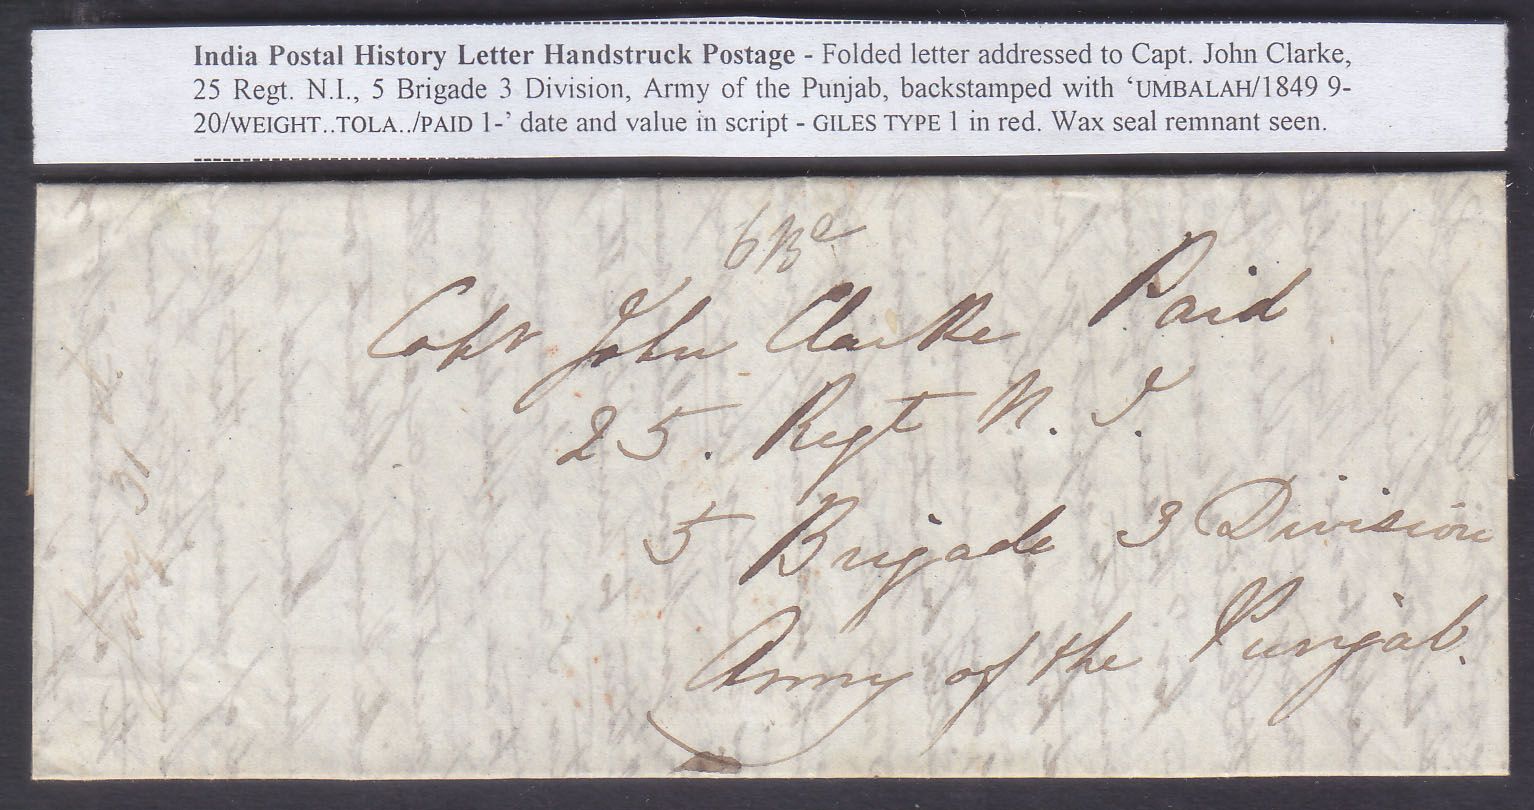 India Postal History Letter Handstruck Postage - Folded letter addressed to Capt. John Clarke,
25 Regt. N.I., 5 Brigade 3 Division, Army of the Punjab, backstamped with ‘UMBALAH/1849 9-
20/WEIGHT..TOLA../PAID 1-’ date and value in script - GILES TYPE 1 in red. Wax seal remnant seen.
Capt John Clarke Paid
25. Regt N. I.
5 Brigade 3 Division
Army of the Punjab.
31